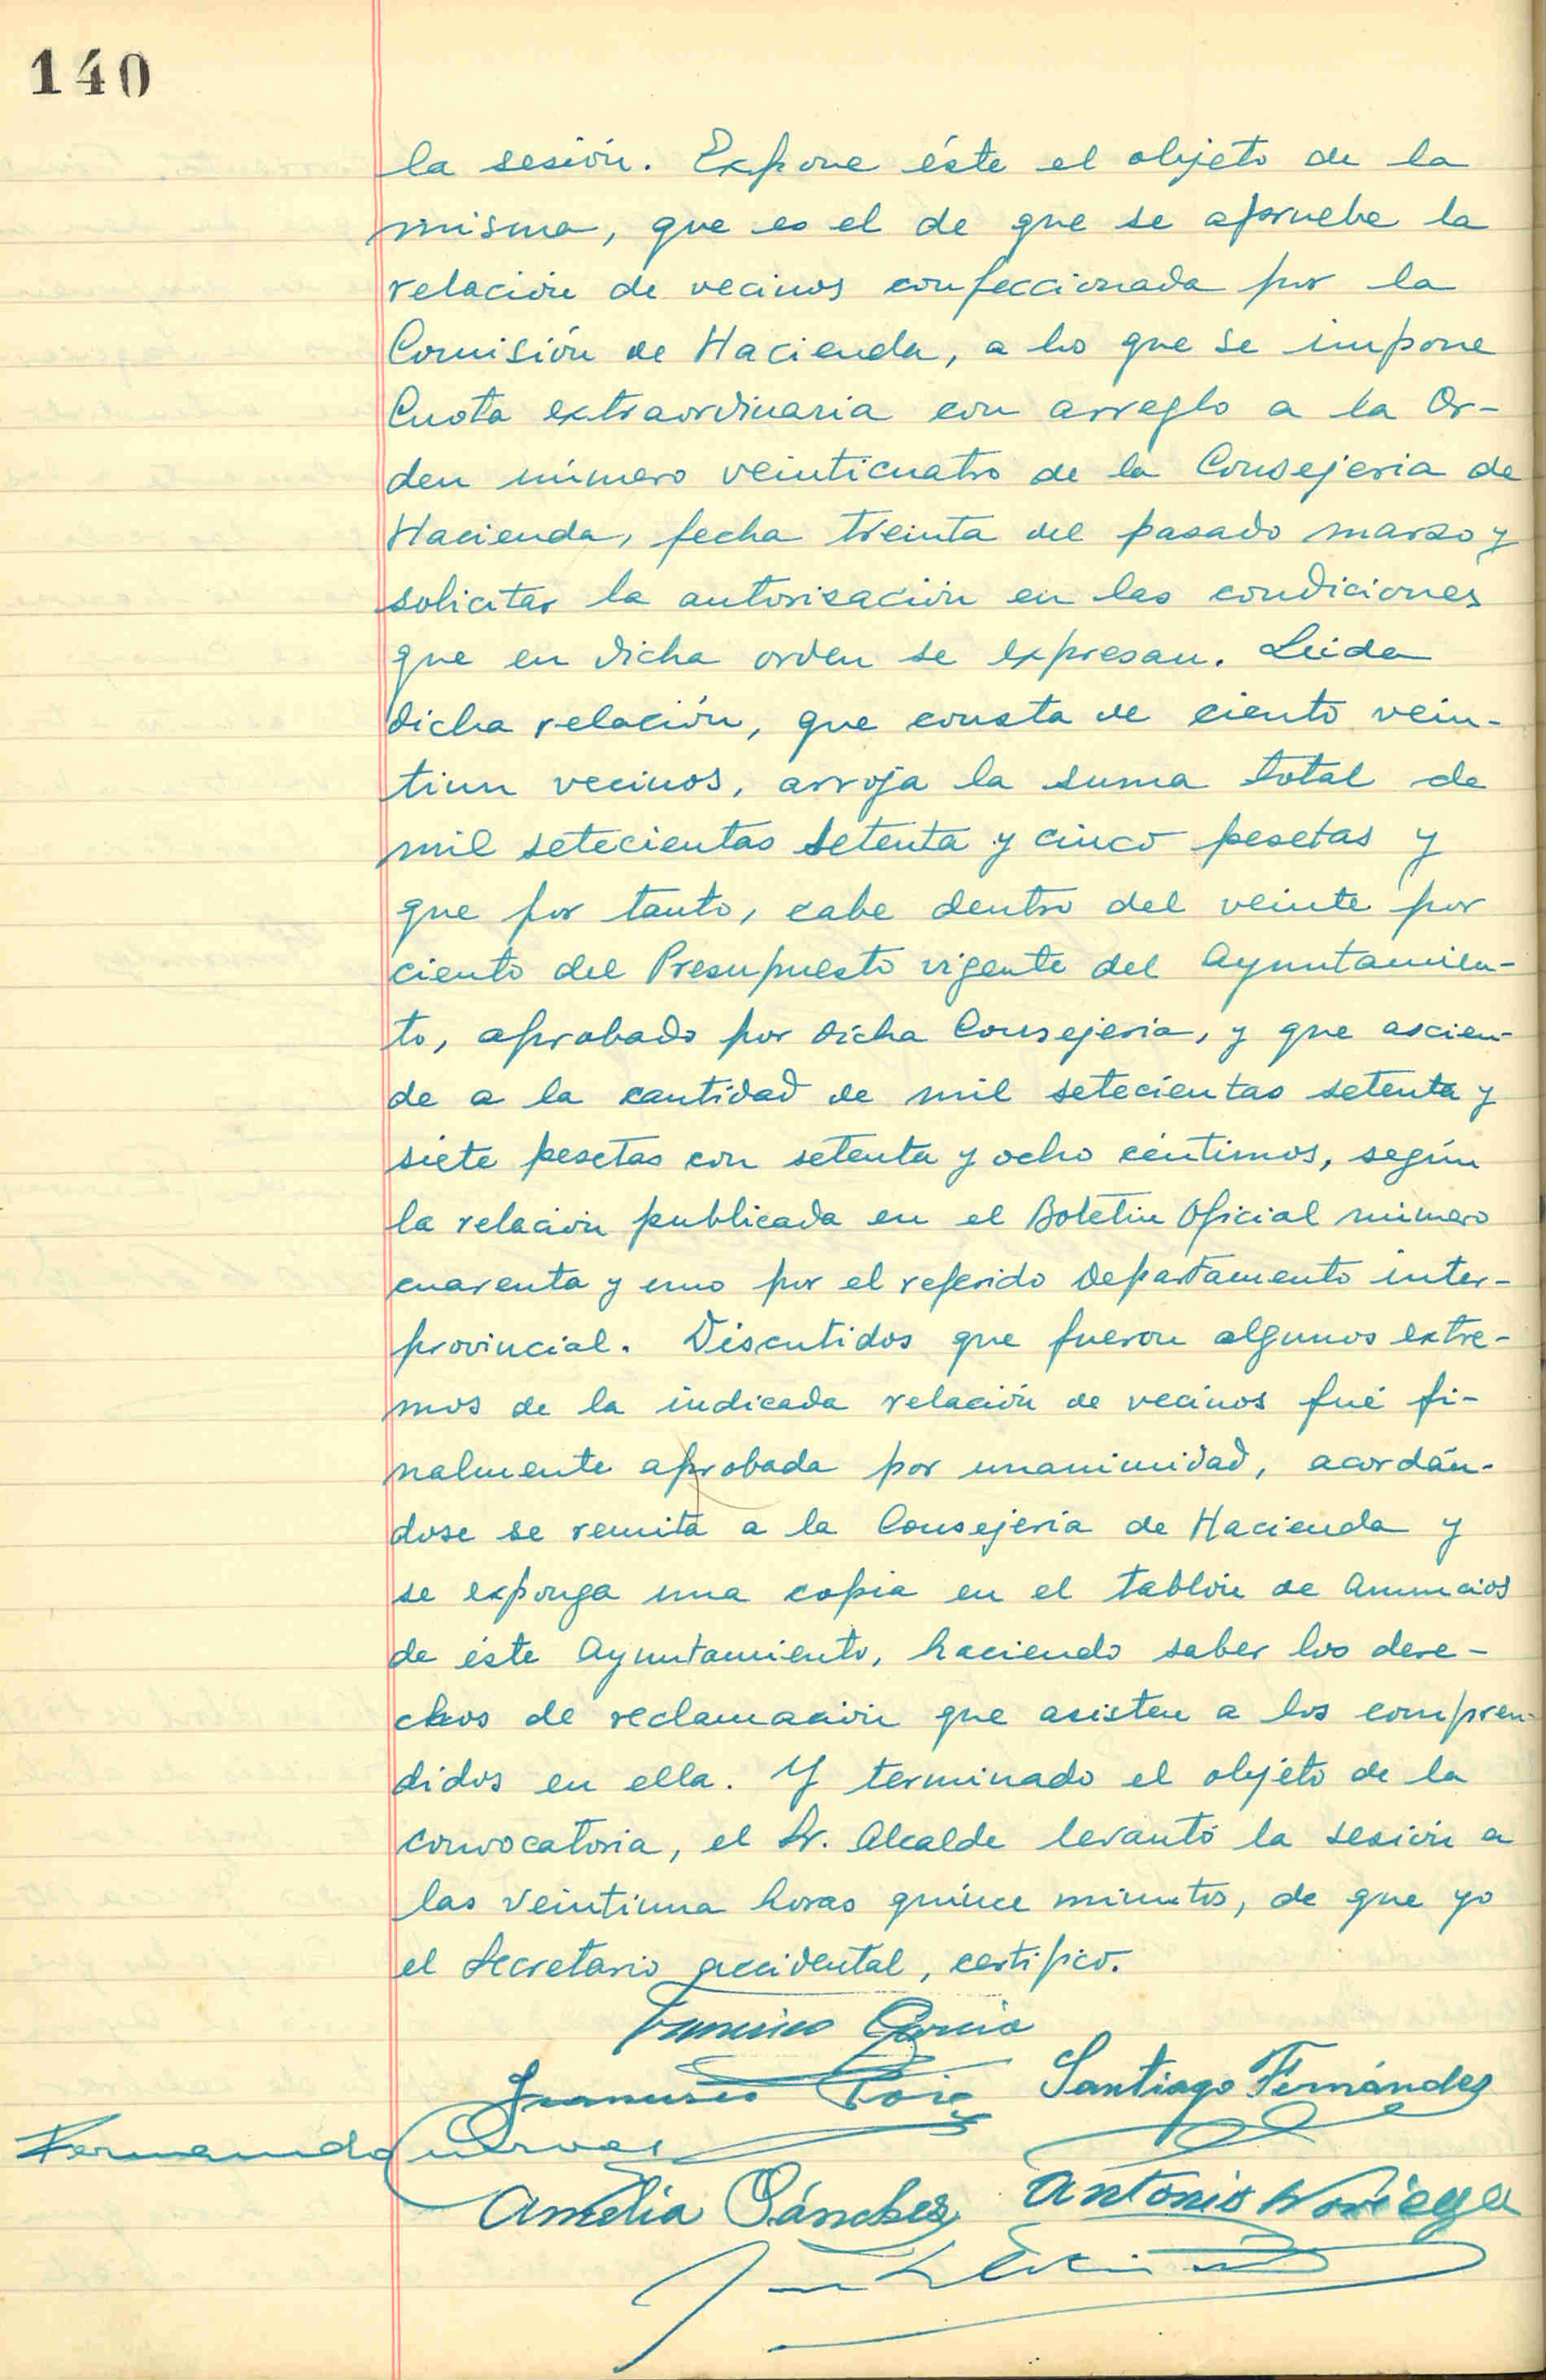 140
la sesión. Expone éste el objeto de la
misma, que es el de que se apruebe la
relación de vecinos confeccionada por la
Comisión de Hacienda, a los que se impone
Cuota extraordinaria con arreglo a la Or-
den número veinticuatro de la Consejeria de
Hacienda, fecha treinta del pasado marzo y
solicitar la autorización en las condiciones
que en dicha orden se expresan. Leida
dicha relación, que consta de ciento vein-
tiun vecinos, arroja la suma total de
mil setecientas setenta y cinco pesetas y
que por tanto, cabe dentro del veinte por
ciento del Presupuesto vigente del Ayuntamien-
to, aprobado por dicha Consejeria, y que ascien-
de a la cantidad de mil setecientas setenta y
siete pesetas con setenta y ocho céntimos, según
la relación publicada en el Boletin Oficial número
cuarenta y uno por el referido Departamento inter-
provincial. Discutidos que fueron algunos extre-
mos de la indicada relación de vecinos fué fi-
nalmente aprobada por unanimidad, acordán-
dose se remita a la Consejeria de Hacienda y
se exponga una copia en el tablón de Anuncios
de éste Ayuntamiento, haciendo saber los dere-
chos de reclamación que asisten a los compren-
didos en ella. Y terminado el objeto de la
convocatoria, el Sr. Alcalde levantó la sesión a
las veintiuna horas quince minutos, de que yo
el Secretario accidental, certifico.
Francisco Garcia
Francisco Santiago Fernández
Fernando Cuervas
Amelia Sánchez Antonio Noriega